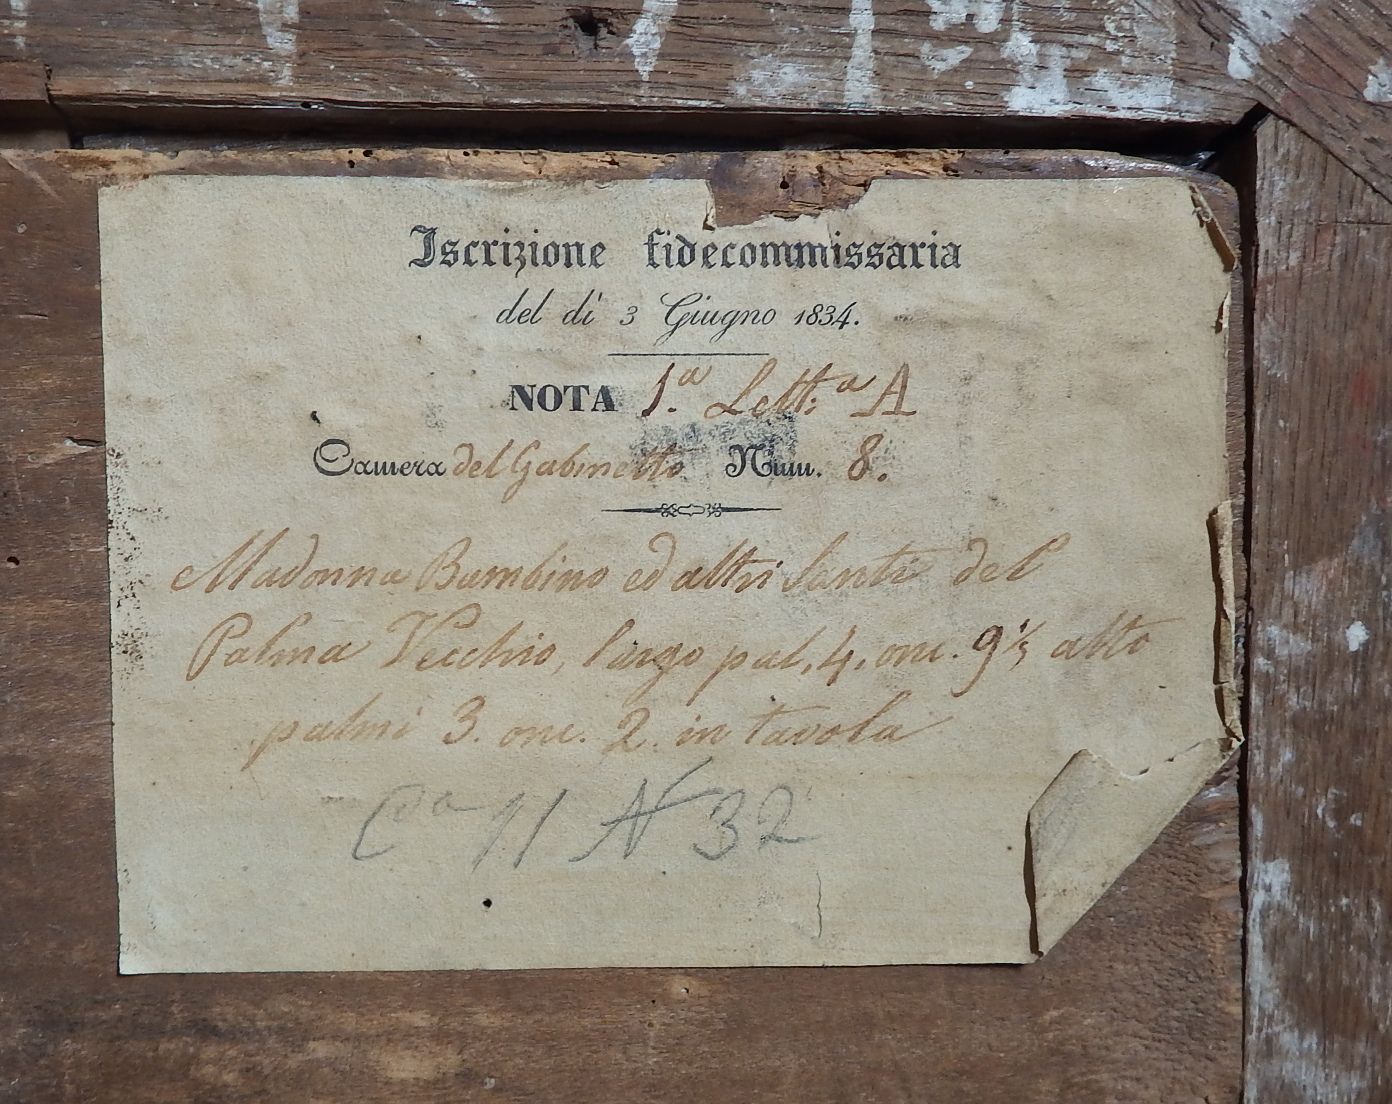 Iscrizione fidecommissaria
del dì 3 Giugno 1834.
NOTA 1.ª Lett:ª A
Camera del Gabinetto Num. 8.
Madonna Bambino ed altri Santi del
Palma Vecchio, largo pal. 4. onc. 9⅓ alto
palmi 3. onc. 2. in tavola
Cª 11 N 32